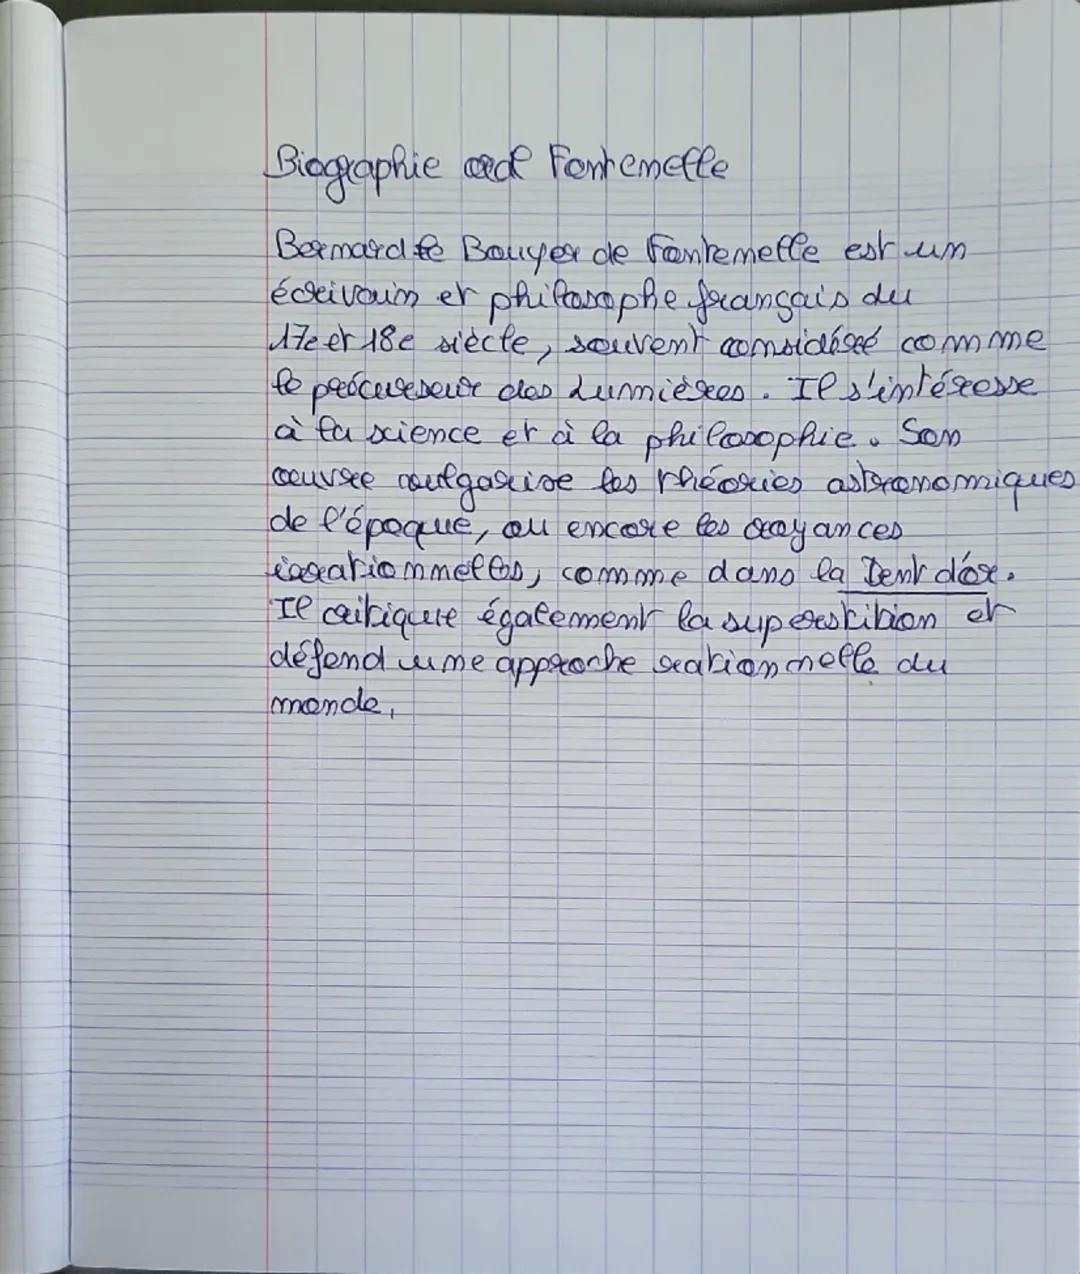 Biographie de Fontenelle
Bernard le Bouyer de Fontenelle est un
écrivain et philosophe français du
17e et 18e siècle, souvent considéré comme
le précurseur des Lumières. Il s'intéresse
à la science et à la philosophie. Son
œuvre vulgarise les théories astronomiques
de l'époque, ou encore les croyances
irrationnelles, comme dans la Dent d'or.
Il critique également la superstition et
défend une approche rationnelle du
monde.